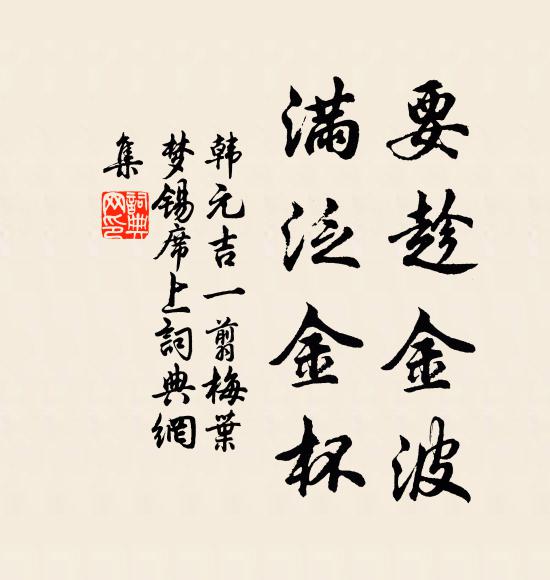 要趁金波
满泛金杯
韩元吉一翦梅葉
梦锡席上詞典網
集
詞典网印